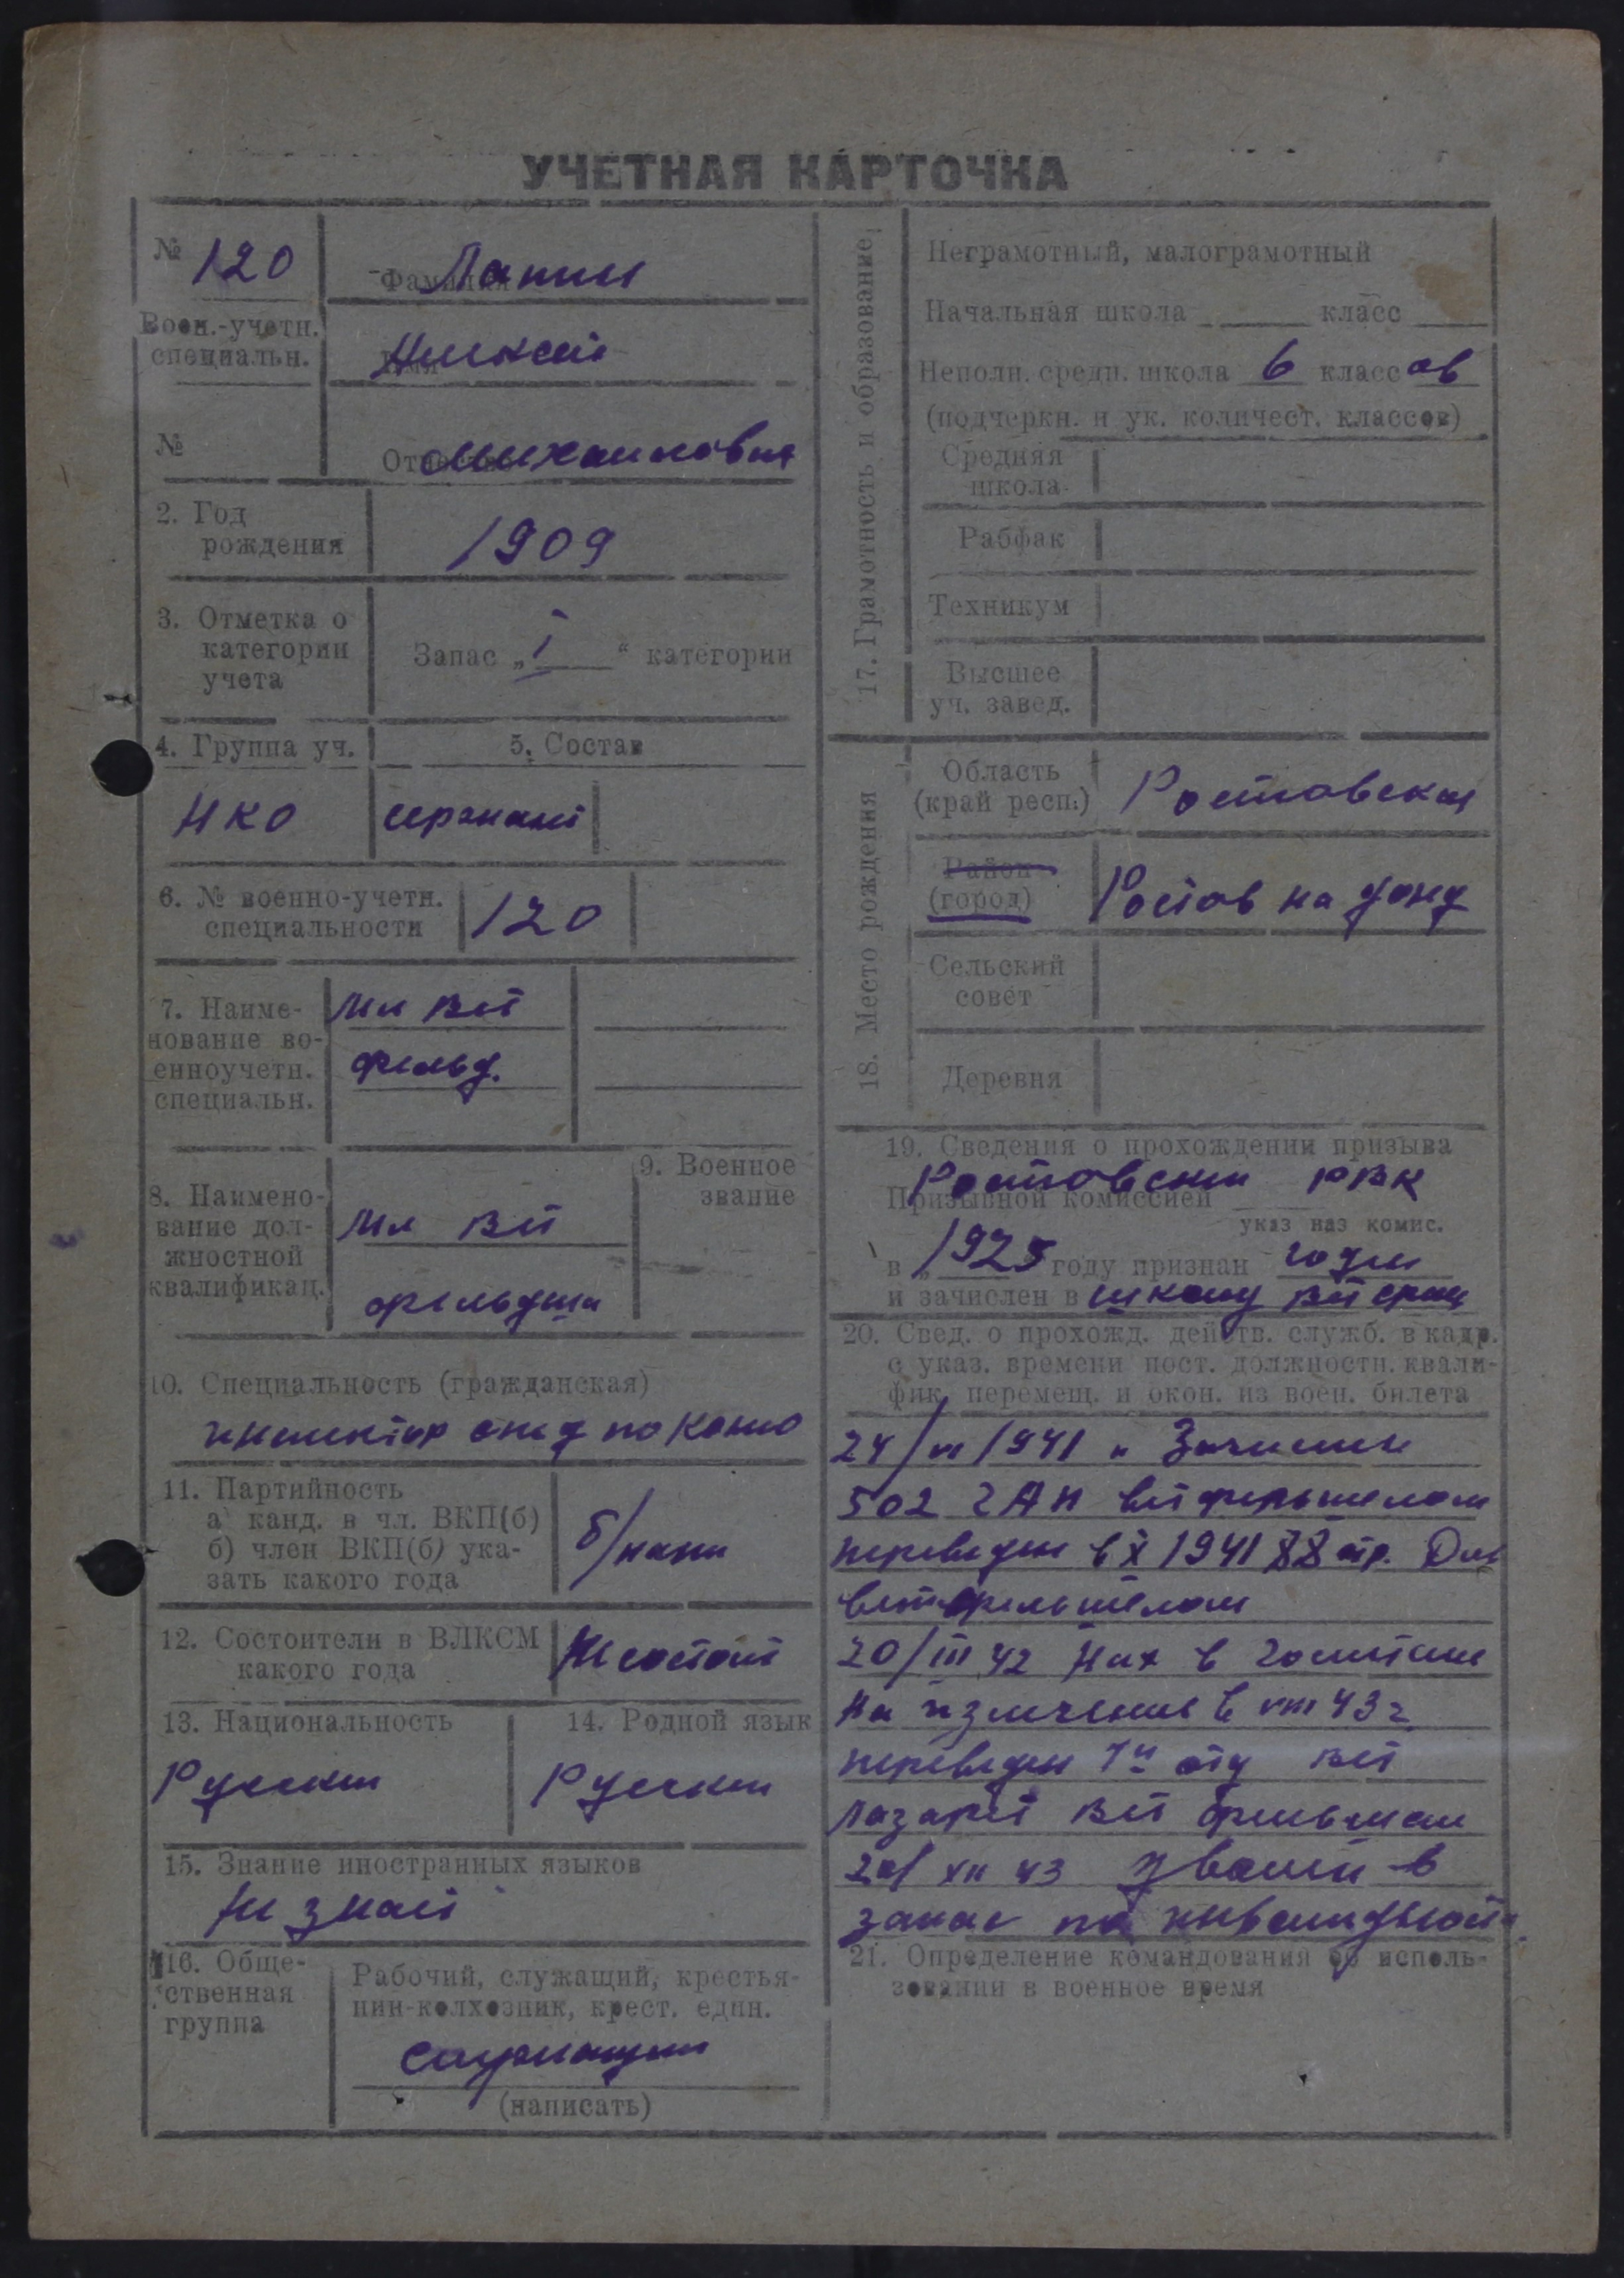 УЧЕТНАЯ КАРТОЧКА
№ 120
Воен.-учетн.
специальн.
№
Фамилия Лапин
Имя
Отчество Михаилович
2. Год
рождения
1909
3. Отметка о
категории
учета
Запас „I“ категории
4. Группа уч.
5. Состав
НКО
сержант
6. № военно-учетн.
специальности
120
7. Наиме-
нование во-
енноучетн.
специальн.
Мл вет
фельд.
8. Наимено-
вание дол-
жностной
квалификац.
Мл вет
фельдша
9. Военное
звание
10. Специальность (гражданская)
инспектор отд по
11. Партийность
а канд. в чл. ВКП(б)
б) член ВКП(б) ука-
зать какого года
б/парт
12. Состоители в ВЛКСМ
какого года
Не состоит
13. Национальность
Русский
14. Родной язык
Русский
15. Знание иностранных языков
Не знает
16. Обще-
ственная
группа
Рабочий, служащий, крестья-
нин-колхозник, крест. един.
служащий
(написать)
17. Грамотность и образование
Неграмотный, малограмотный
Начальная школа класс
Неполн. средн. школа 6 классов
(подчеркн. и ук. количест. классов)
Средняя
школа
Рабфак
Техникум
Высшее
уч. завед.
18. Место рождения
Область
(край респ:)
Ростовская
Район
(город)
Ростов на дону
Сельский
совет
Деревня
19. Сведения о прохождении призыва
Призывной комиссией Ростовский РВК
указ наз комис.
в „ 1925 году признан годен
и зачислен в школу вет
20. Свед. о прохожд. действ. служб. в кадр.
с указ. времени пост. должностн. квали-
фик. перемещ. и окон. из воен. билета
1941 Зачислен
502 ГАП ветфельшелом
переведен в X 1941 88 стр. Див
ветфельшелом
20/III 42 Нах в госпитале
На излечение в VIII 43 г
переведен 7й отд вет
лазарет вет фельшем
XII 43 уволен в
запас по инвалидност
21. Определение командования об исполь-
зовании в военное время